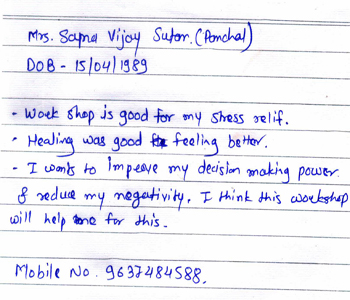 Mrs. Sapna Vijay Sutar. (Panchal)
DOB - 15/04/1989
- Work shop is good for my stress relif.
- Healing was good feeling better.
- I wants to impeove my decision making power
& reduce my negativity. I think this workshop
will help me for this.
Mobile No. 9637484588.